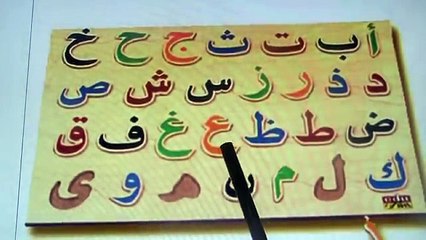 أ ب ت ث ج ح خ
د ذ ر ز س ش ص
ض ط ظ ع غ ف ق
ك ل م ن هـ و ى